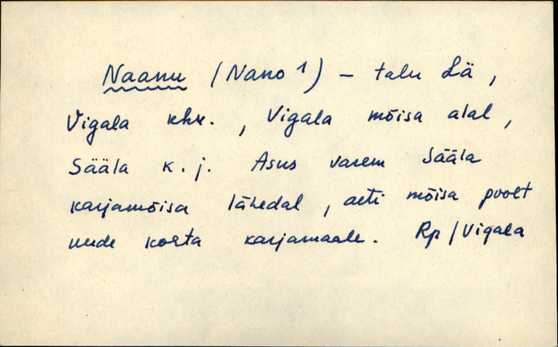 Naanu (Nano 1) – talu Lä,
Vigala khk., Vigala mõisa alal,
Sääla k. j. Asus varem Sääla
karjamõisa lähedal, aeti mõisa poolt
uude kohta karjamaale. Rp / Vigala